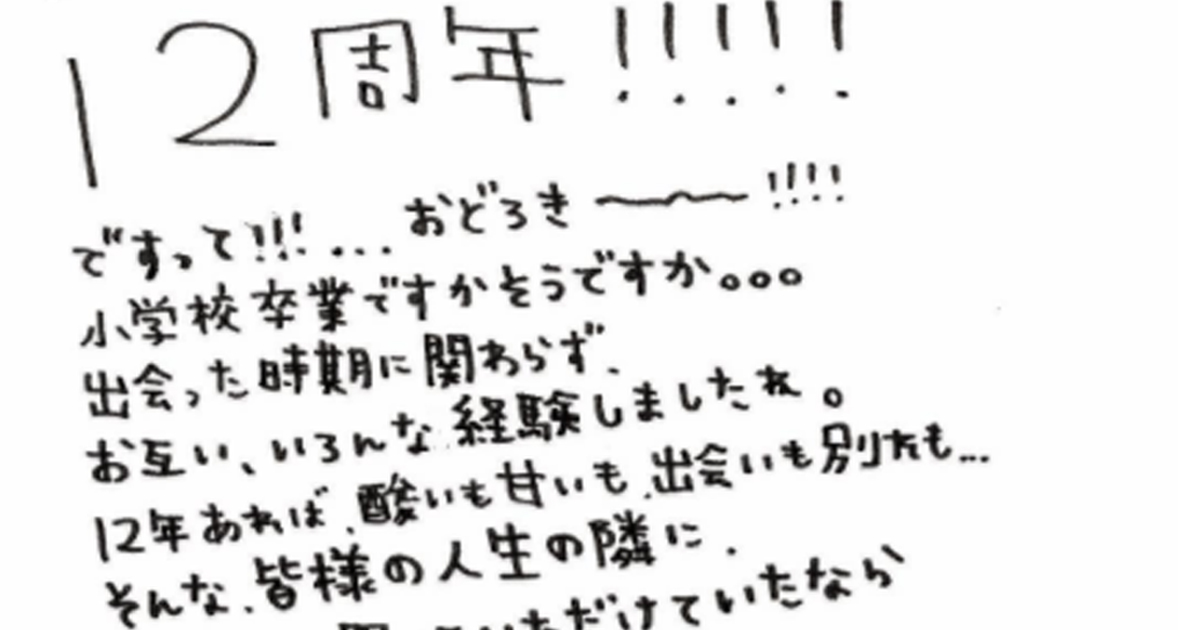 12周年!!!!!
ですって!!!...おどろき〜〜!!!!
小学校卒業ですかそうですか。。。
出会った時期に関わらず、
お互い、いろんな経験しましたね。
12年あれば、酸いも甘いも、出会いも別れも...
そんな、皆様の人生の隣に、
いただけていたなら